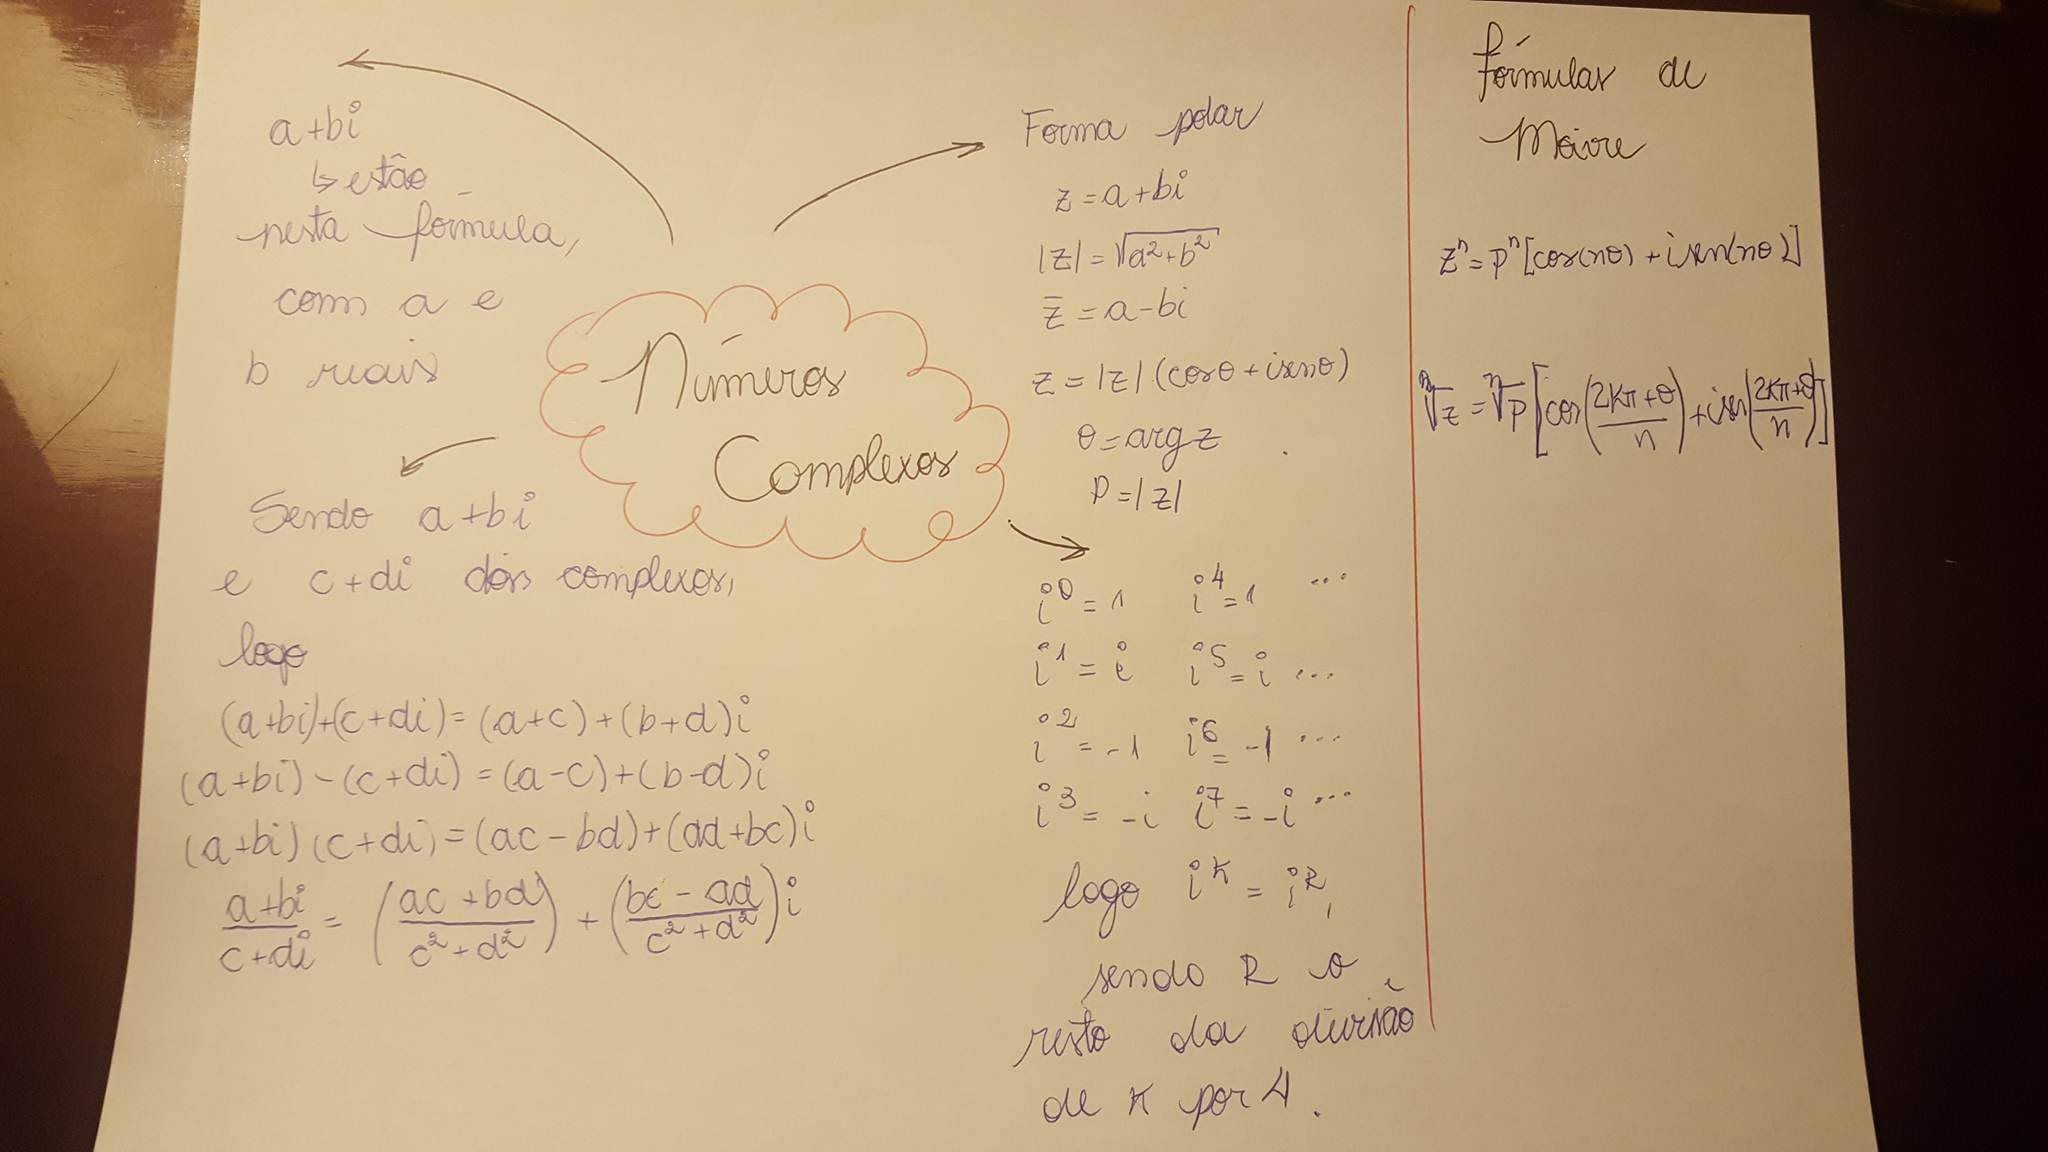 Números
Complexos
a+bi
↳ estão
nesta fórmula,
com a e
b reais
Sendo a+bi
e c+di dois complexos,
logo
(a+bi)+(c+di)=(a+c)+(b+d)i
(a+bi)-(c+di)=(a-c)+(b-d)i
(a+bi)(c+di)=(ac-bd)+(ad+bc)i
a+bi/c+di = (ac+bd/c²+d²) + (bc-ad/c²+d²)i
Forma polar
z=a+bi
|z|=√a²+b²
z̄=a-bi
z=|z|.(cosθ+isenθ)
θ=arg z
P=|z|
i⁰=1 i⁴=1 ...
i¹=i i⁵=i ...
i²=-1 i⁶=-1 ...
i³=-i i⁷=-i ...
logo i^K=i^R,
sendo R o
resto da divisão
de K por 4.
fórmulas de
Moivre
zⁿ=Pⁿ[cos(nθ)+isen(nθ)]
ⁿ√z=ⁿ√P[cos(2Kπ+θ/n)+isen(2Kπ+θ/n)]